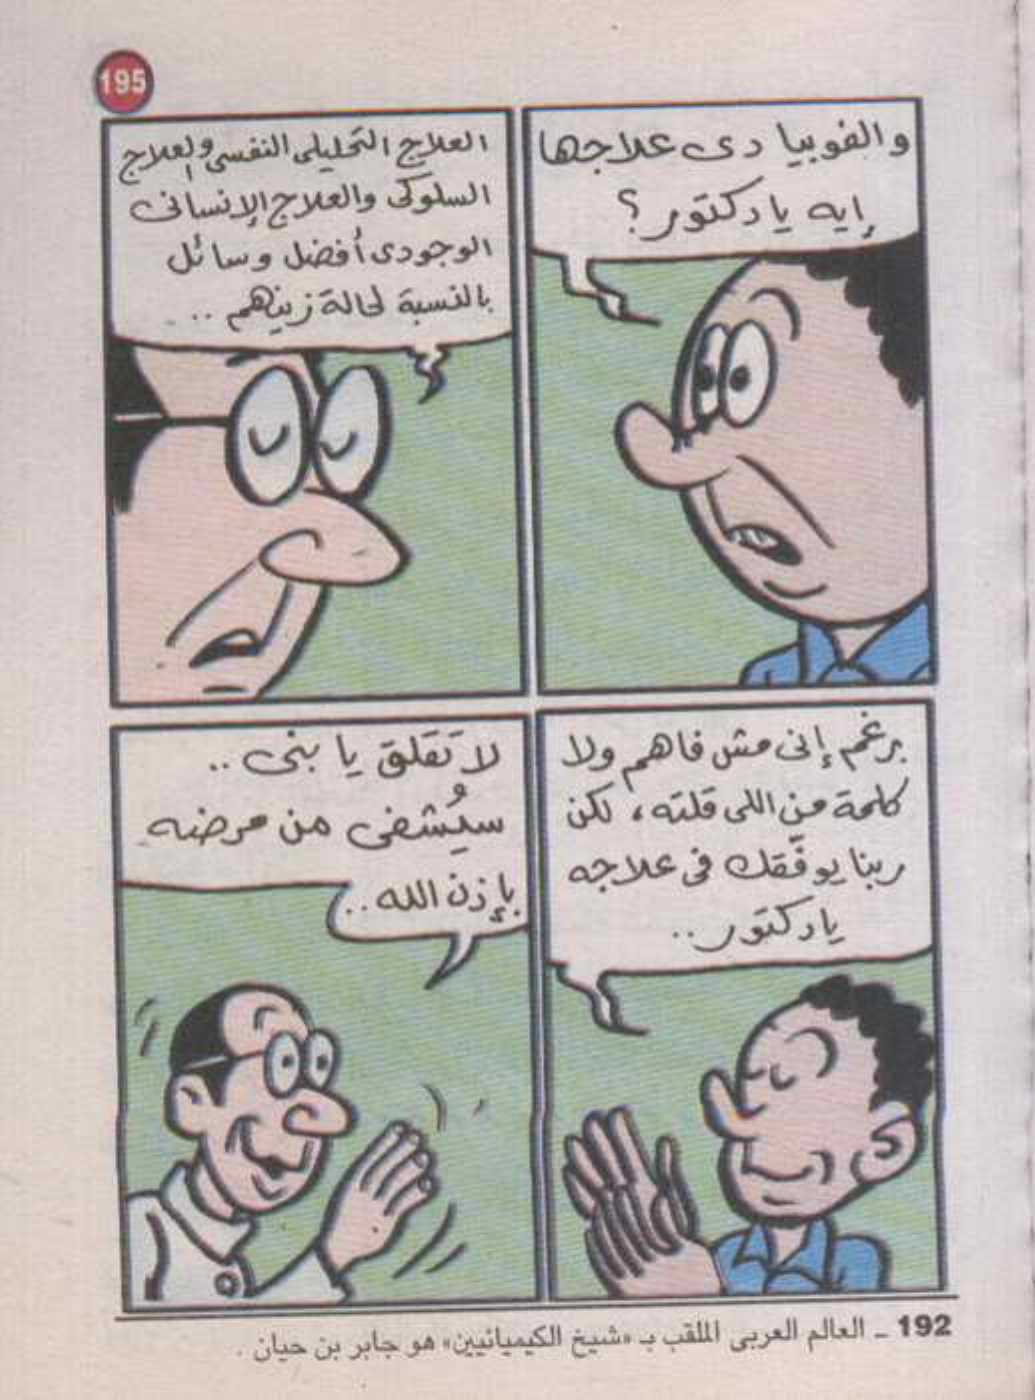 195
والفوبيا دى علاجها
إيه يا دكتور؟
العلاج التحليلى النفسى والعلاج
السلوكى والعلاج الإنسانى
الوجودى أفضل وسائل
بالنسبة لحالة زينهم ..
برغم إنى مش فاهم ولا
كلمة من اللى قلته، لكن
ربنا يوفّقك فى علاجه
يا دكتور..
لا تَقلق يا بنى ..
سيُشفى من مرضه
بإذن الله ..
192 ـ العالم العربى الملقب بـ «شيخ الكيميائيين» هو جابر بن حيان .